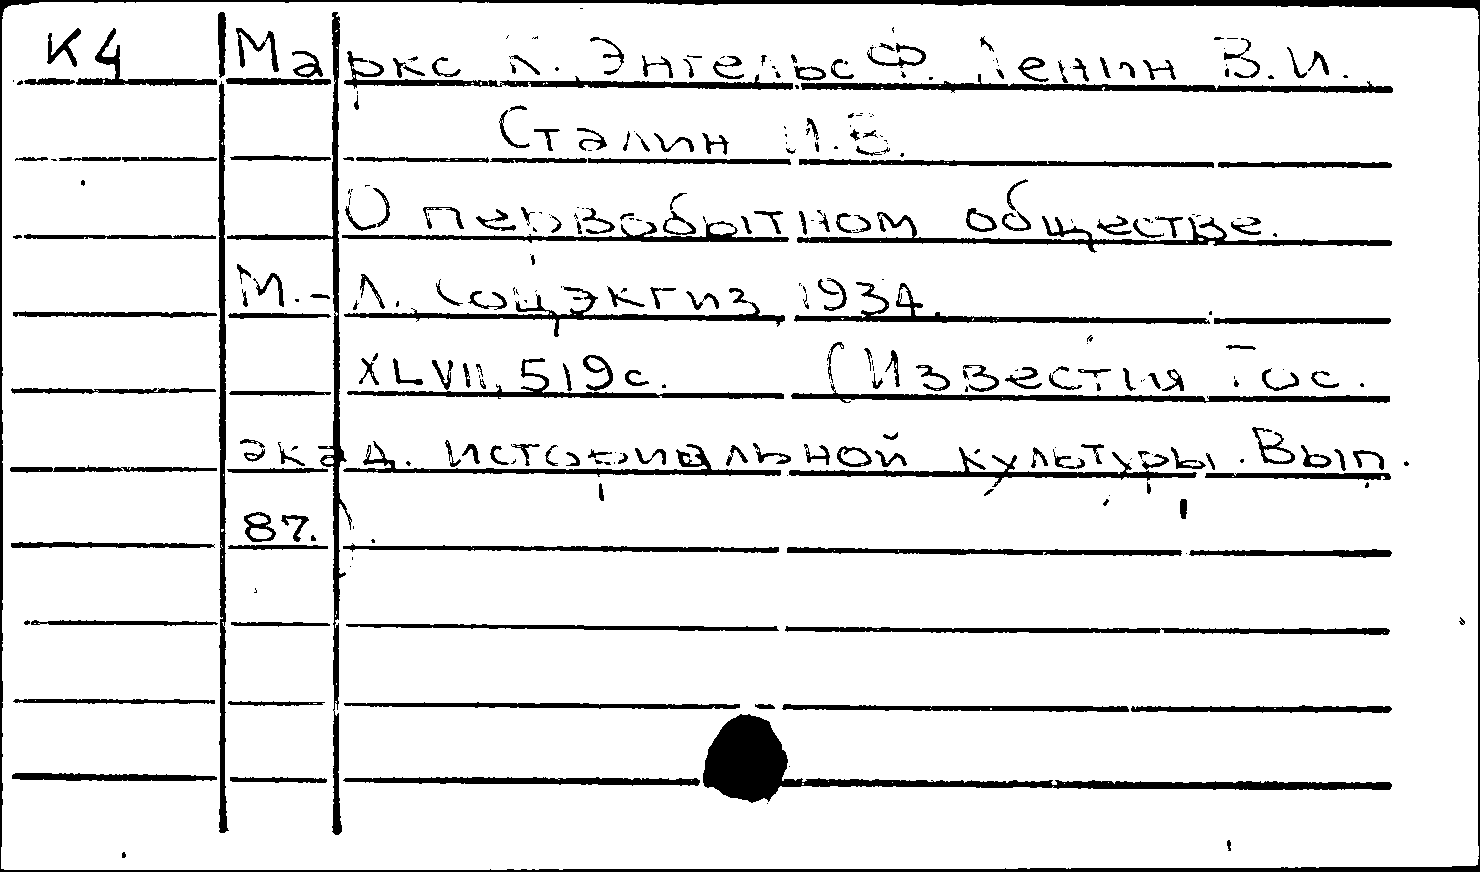 К4 Маркс К., Энгельс Ф., Ленин В.И.,
Сталин И.В.
О первобытном обществе.
М.-Л., Соцэкгиз, 1934.
XLVII, 519с. (Известия Гос.
акад. историальной культуры. Вып.
87.).